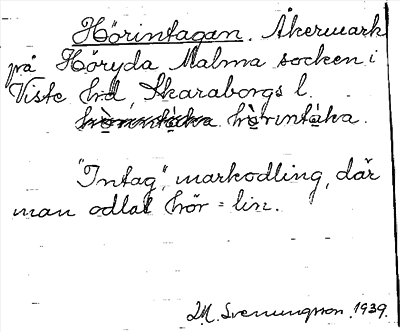 Hörintagan. Åkermark
på Höryda Malma socken i
Viste hd, Skaraborgs l.
hö̀rintáka.
"Intag", markodling, där
man odlat hör = lin.
M. Svenungsson. 1939.